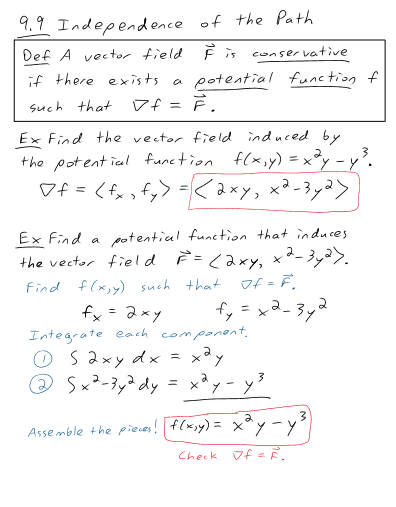 9.9 Independence of the Path
Def A vector field F⃗ is conservative
if there exists a potential function f
such that ∇f = F⃗.
Ex Find the vector field induced by
the potential function f(x,y) = x²y - y³.
∇f = ⟨fₓ, f_y⟩ = ⟨2xy, x²-3y²⟩
Ex Find a potential function that induces
the vector field F⃗ = ⟨2xy, x²-3y²⟩.
Find f(x,y) such that ∇f = F⃗.
fₓ = 2xy f_y = x² - 3y²
Integrate each component.
① ∫ 2xy dx = x²y
② ∫ x²-3y² dy = x²y - y³
Assemble the pieces! f(x,y) = x²y - y³
Check ∇f = F⃗.